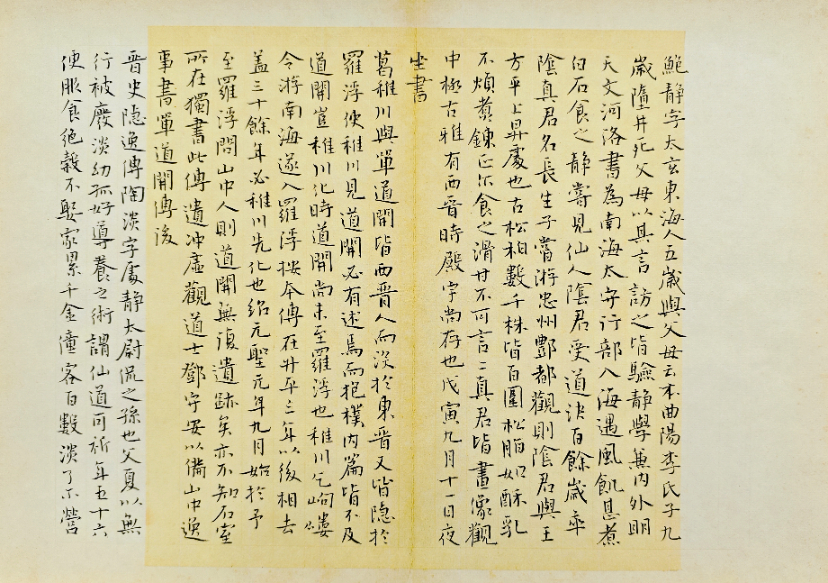 鮑靜字太玄東海人五歲與父母云本曲陽李氏子九
歲墮井死父母以其言訪之皆驗靜學兼內外明
天文河洛書為南海太守行部入海遇風飢甚煮
白石食之靜嘗見仙人陰君受道訣百餘歲卒
陰真君名長生予嘗游忠州酆都觀則陰君與王
方平上昇處也古松柏數千株皆百圍松脂如酥乳
不煩煮鍊正尔食之滑甘不可言二真君皆畫像觀
中極古雅有西晋時殿宇尚存也戊寅九月十一日夜
坐書
葛稚川與單道開皆西晋人而沒於東晋又皆隐於
羅浮使稚川見道開必有述焉而抱樸內篇皆不及
道開豈稚川化時道開尚未至羅浮也稚川乞岣嶁
令游南海遂入羅浮按本傳在升平三年以後相去
蓋三十餘年必稚川先化也紹元聖元年九月始於予
至羅浮問山中人則道開無復遺跡矣亦不知石室
所在獨書此傳遺沖虛觀道士鄧守安以備山中逸
事書單道開傳後
晋史隐逸傳陶淡字處靜太尉侃之孫也父夏以無
行被廢淡幼孤好導養之術謂仙道可祈年五十六
便服食絕穀不娶家累千金僮客百數淡了不營